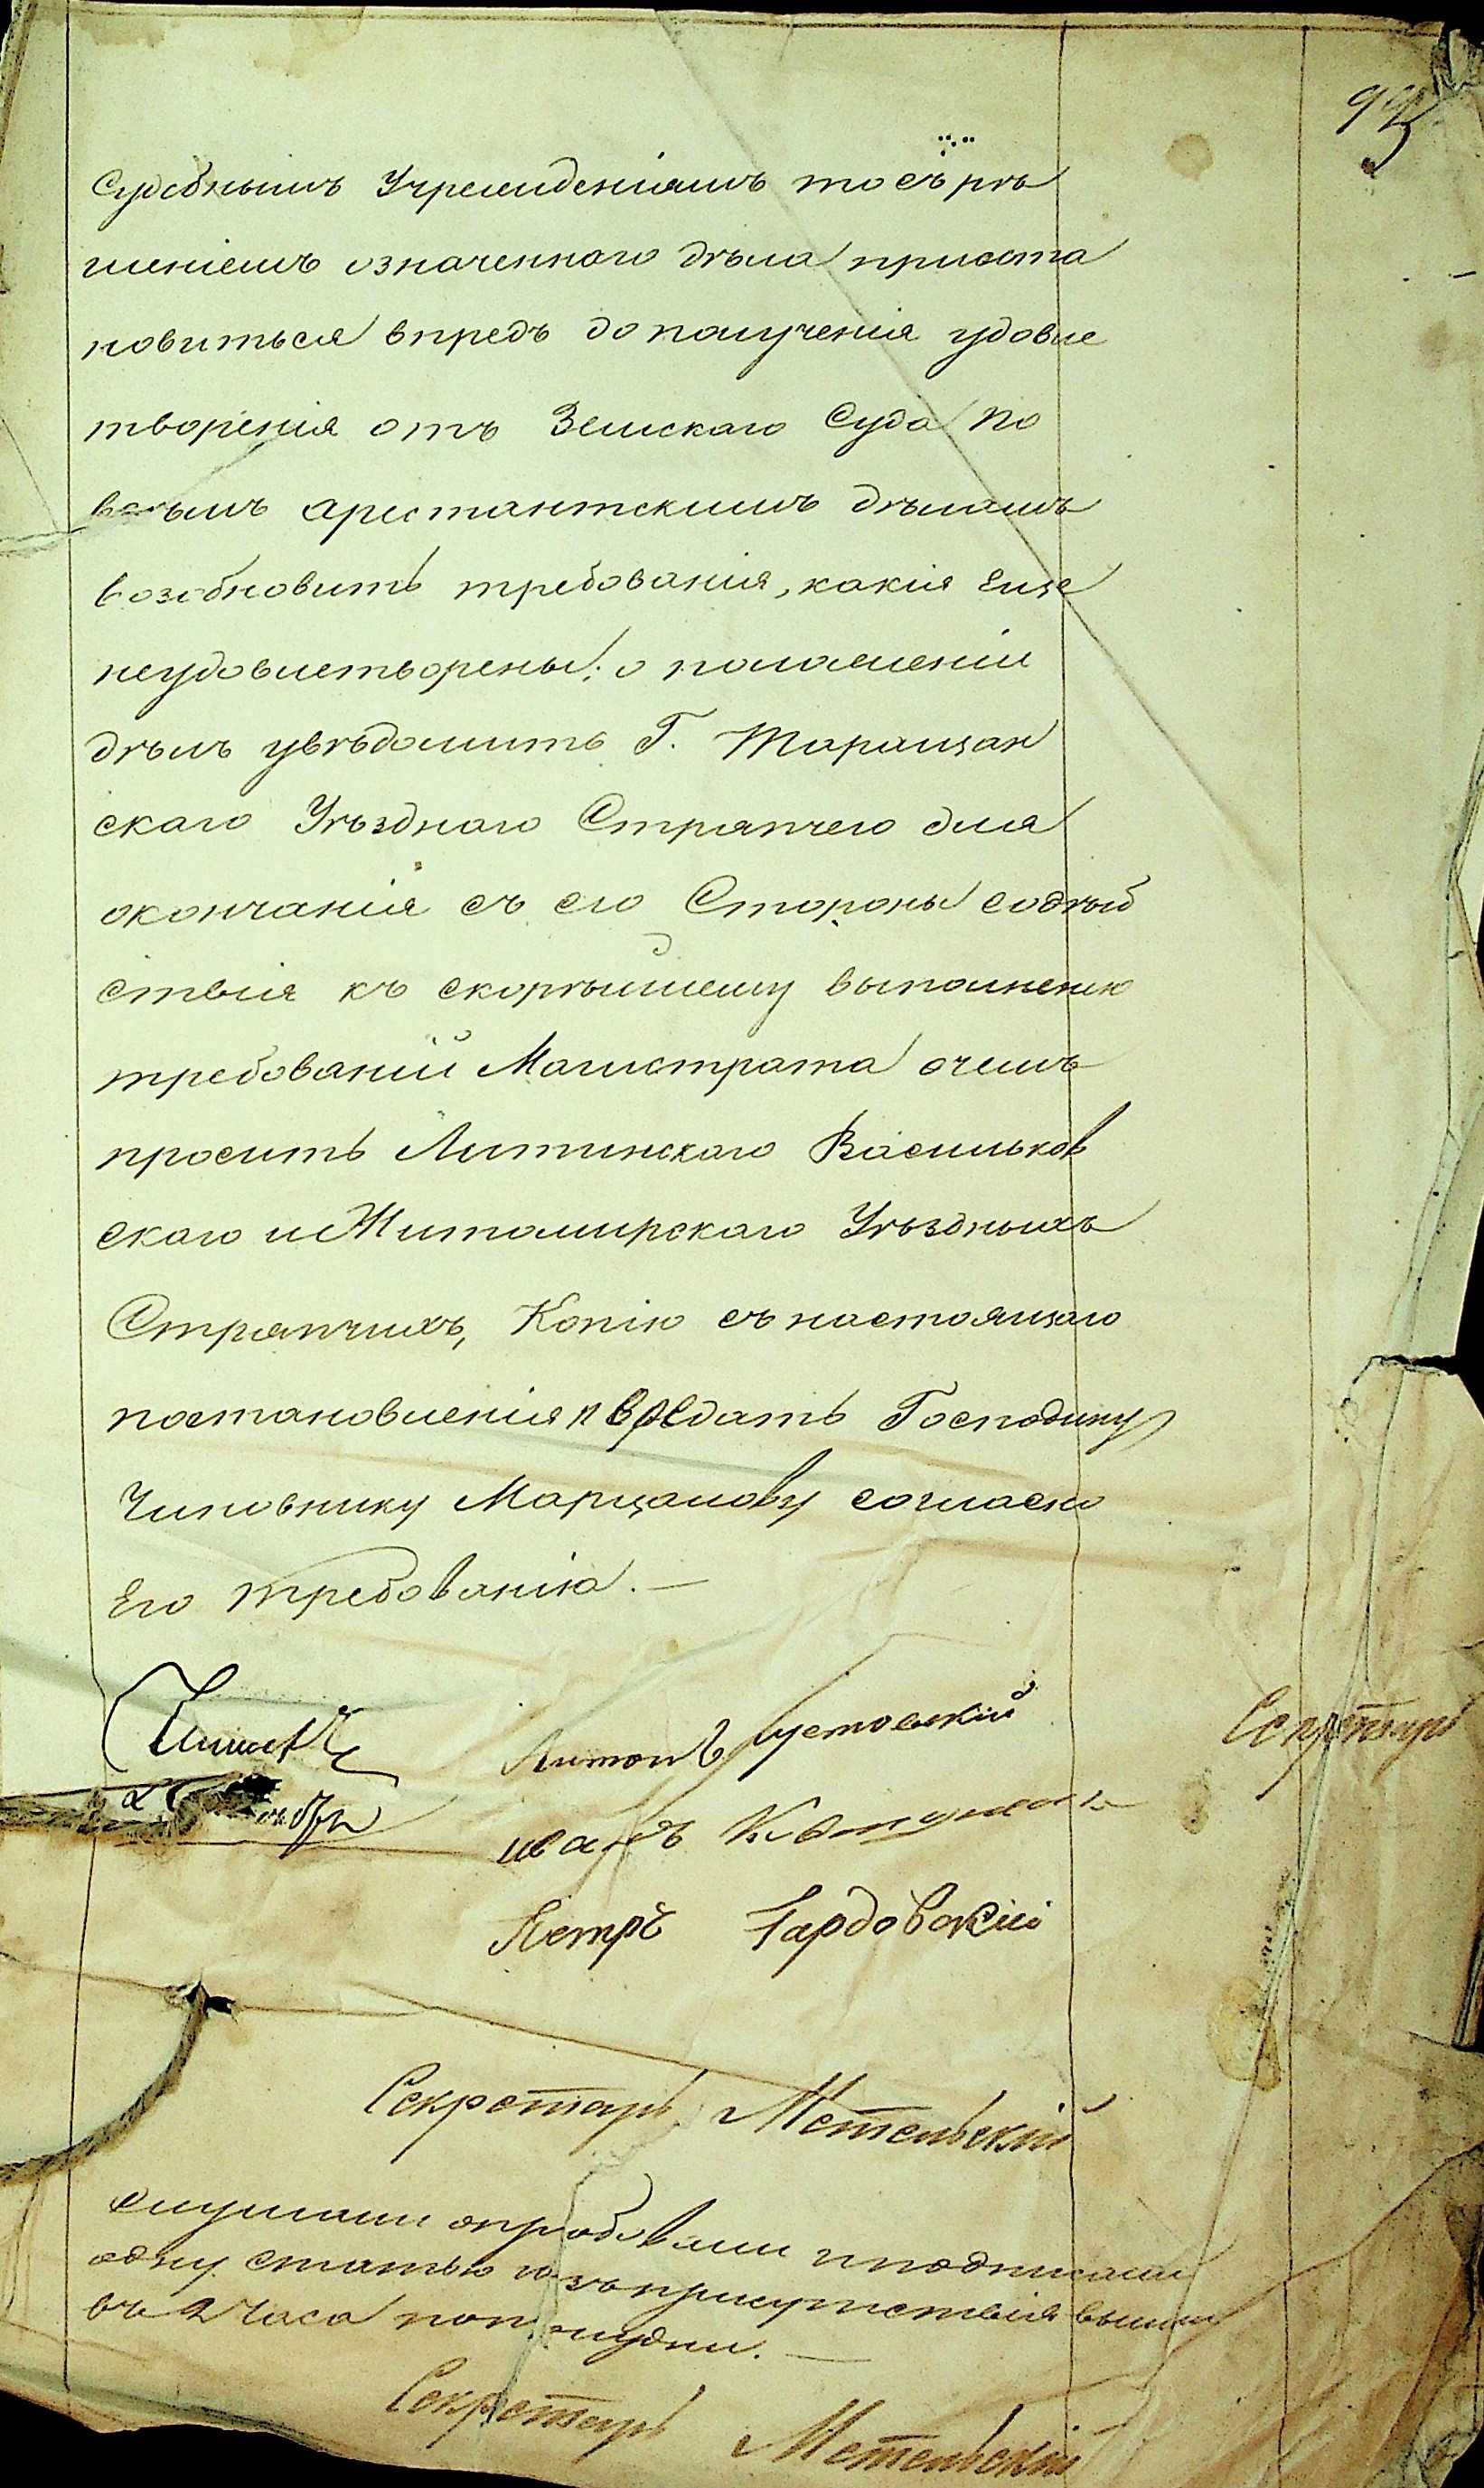 995
Судебнымъ Учрежденіямъ то съ рѣ
шеніемъ означеннаго дѣла приоста
новиться впредь до полученія удовле
творенія отъ Земскаго Суда по
всѣмъ арестантскимъ дѣламъ
возобновить требованія, какія Еще
неудовлетворены; о положеніи
дѣлъ увѣдомить Г. Таращан
скаго Уѣзднаго Стряпчего для
окончанія съ его Стороны содѣй
ствія къ скорѣйшему выполненію
требованій Магистрата очемъ
просить Литинскаго Васильков
скаго и Житомирскаго Уѣздныхъ
Стряпчихъ, Копію съ настоящаго
постановленія передать Господину
Чиновнику Марцалову согласно
Его требованія. —
Антонъ
Секретарь
иванъ
Петръ Гардовскій
Секретарь Метельскій
слушали опробовали и подписали
одну статью изъ присутствія вышли
въ 2 часа пополудни. —
Секретарь Метельскій